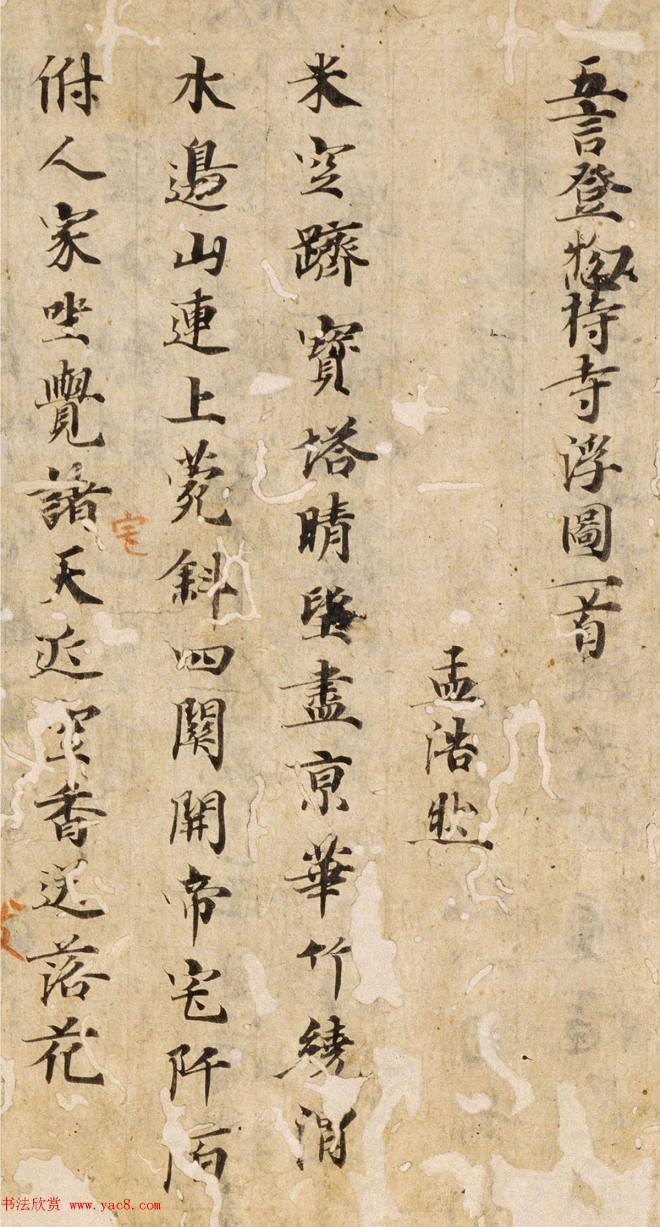 五言登揔持寺浮圖一首
孟浩然
米空躋寶塔晴望盡京華竹繞渭
水邊山連上菀斜四關開帝宅阡陌
俯人家坐覺諸天近空香送落花
宅
书法欣赏 www.yac8.com